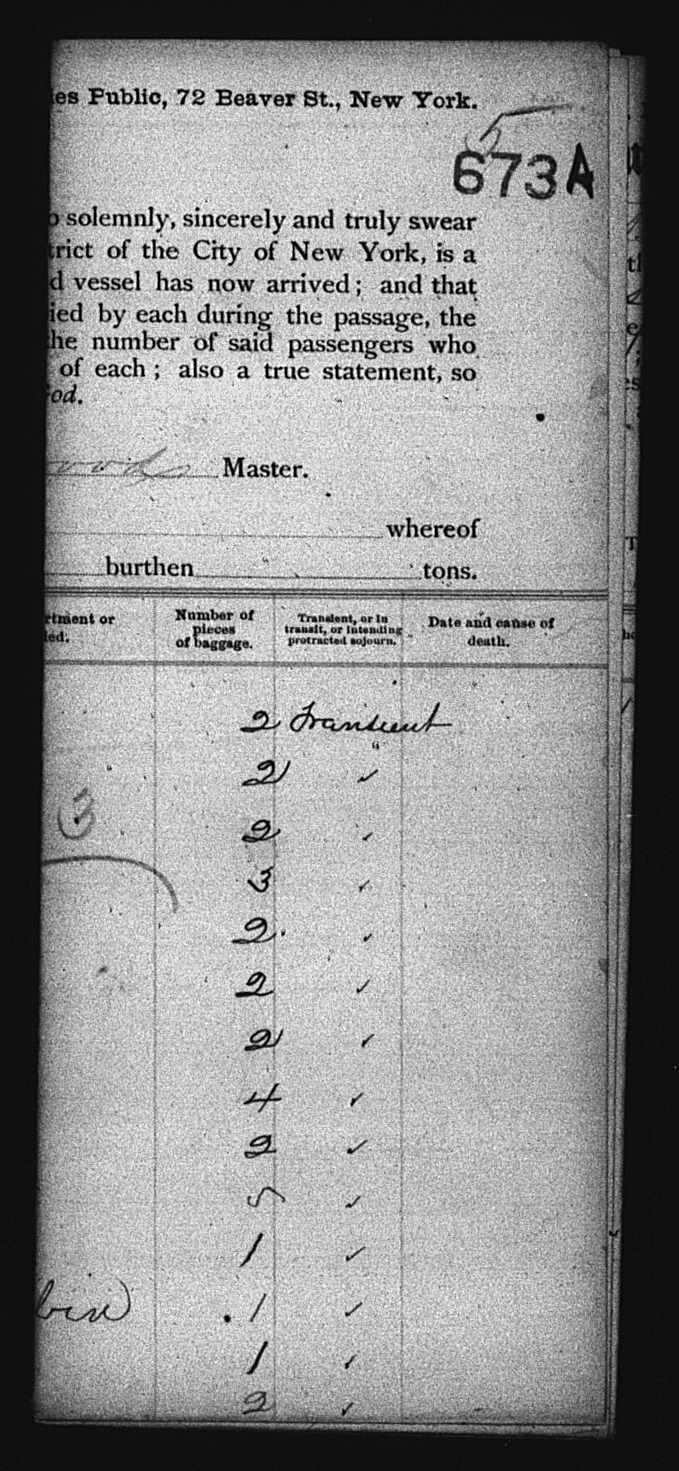 es Public, 72 Beaver St., New York.
5
673A
o solemnly, sincerely and truly swear
trict of the City of New York, is a
d vessel has now arrived; and that
ied by each during the passage, the
he number of said passengers who
of each; also a true statement, so
od.
woods Master.
whereof
burthen tons.
rtment or
ied.
Number of
pieces
of baggage.
Transient, or in
transit, or intending
protracted sojourn.
Date and cause of
death.
2 Transient
2 ✓
3
2 ✓
3 ✓
2. ✓
2 ✓
2 ✓
4 ✓
2 ✓
5 ✓
1 ✓
bin .1 ✓
1 ✓
2 ✓